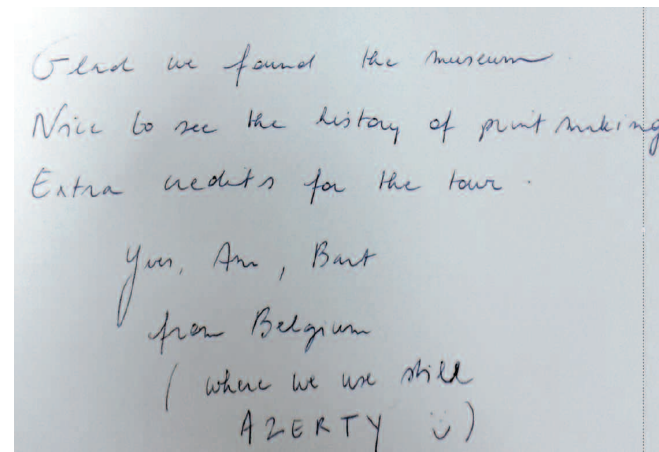 Glad we found the museum.
Nice to see the history of print making
Extra credits for the tour.
Yves, Ann, Bart
from Belgium
(where we use still
AZERTY ü)